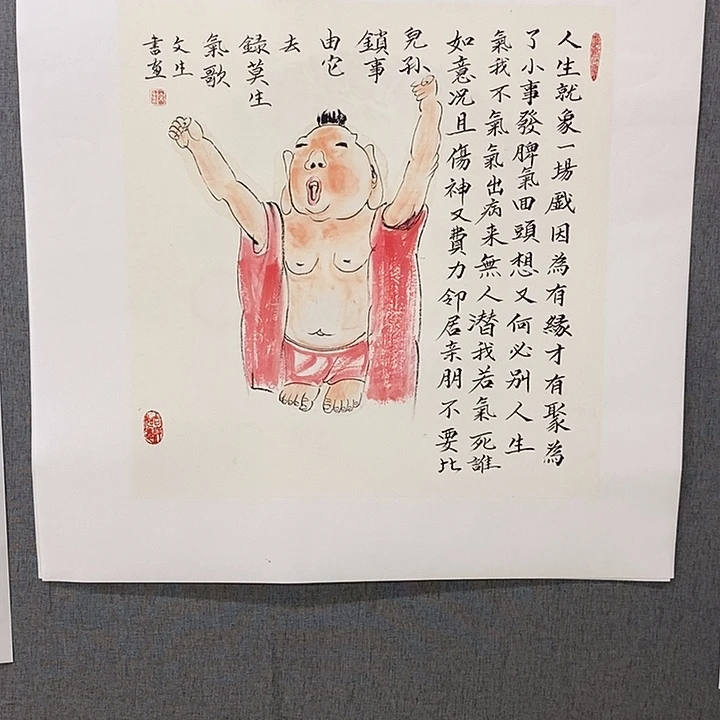 人生就象一場戲因為有緣才有聚為
了小事發脾氣回頭想又何必别人生
氣我不氣氣出病来無人潜我若氣死誰
如意况且傷神又費力邻居亲朋不要比
兒孙
鎖事
由它
去
録莫生
氣歌
文生
書画